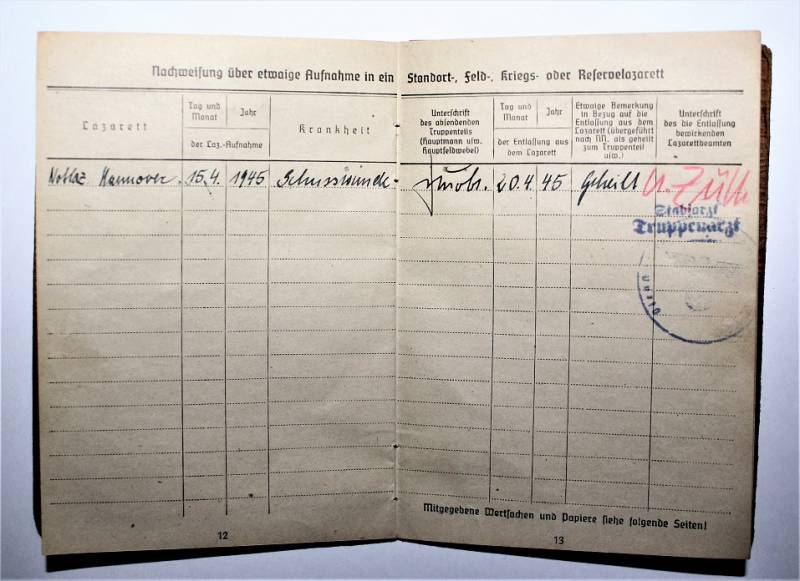 Nachweisung über etwaige Aufnahme in ein Standort-, Feld-, Kriegs- oder Reservelazarett
Lazarett
Tag und
Monat
Jahr
der Laz.-Aufnahme
Krankheit
Unterschrift
des absendenden
Truppenteils
(Hauptmann usw.
Hauptfeldwebel)
Tag und
Monat
Jahr
der Entlassung aus
dem Lazarett
Etwaige Bemerkung
in Bezug auf die
Entlassung aus dem
Lazarett (übergeführt
nach NN. als geheilt
zum Truppenteil
usw.)
Unterschrift
des die Entlassung
bewirkenden
Lazarettbeamten
Hannover 15.4. 1945 Schusswunde 20.4. 45 Geheilt
Stabsarzt
Truppenarzt
Mitgegebene Wertsachen und Papiere siehe folgende Seiten!
12
13